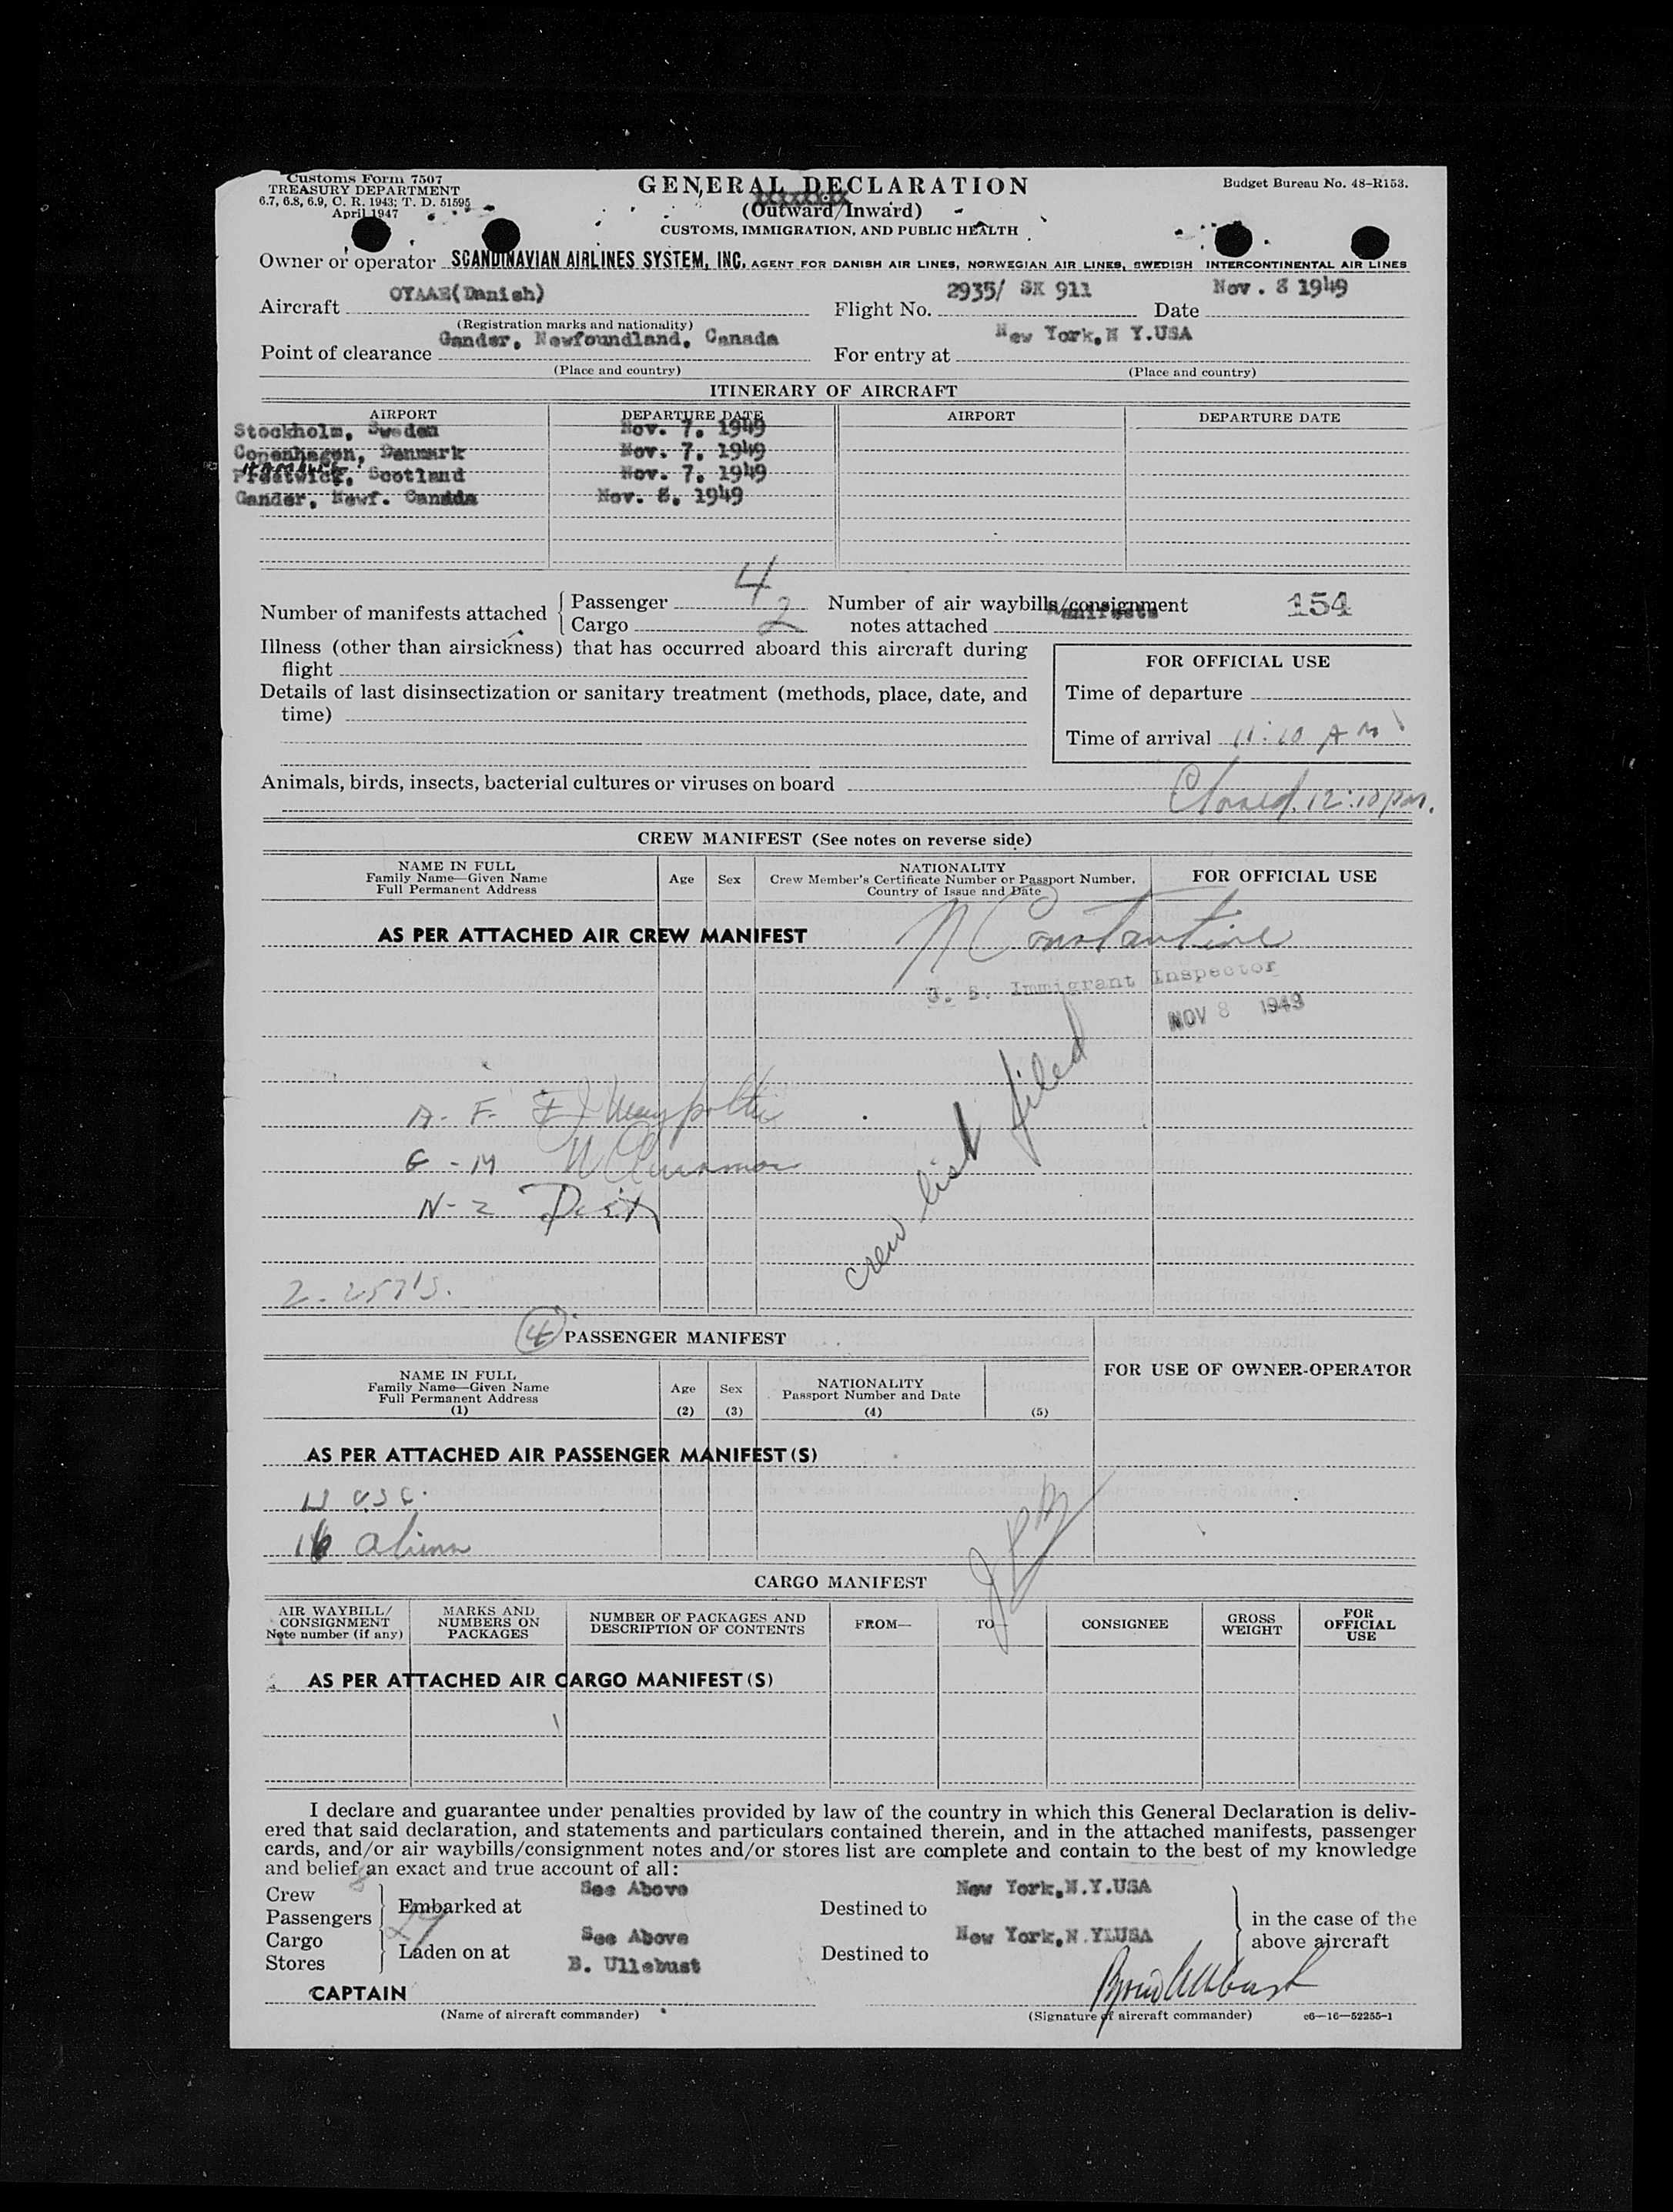 Customs Form 7507
TREASURY DEPARTMENT
6.7, 6.8, 6.9, C. R. 1943; T. D. 51595
April 1947
GENERAL DECLARATION
(Outward/Inward)
CUSTOMS, IMMIGRATION, AND PUBLIC HEALTH
Budget Bureau No. 48-R153.
Owner or operator SCANDINAVIAN AIRLINES SYSTEM, INC. AGENT FOR DANISH AIR LINES, NORWEGIAN AIR LINES, SWEDISH INTERCONTINENTAL AIR LINES
Aircraft OYAAE(Danish) Flight No. 2935/ SK 911 Date Nov. 8 1949
(Registration marks and nationality)
Point of clearance Gander, Newfoundland, Canada For entry at New York,N Y.USA
(Place and country) (Place and country)
ITINERARY OF AIRCRAFT
AIRPORT DEPARTURE DATE AIRPORT DEPARTURE DATE
Stockholm, Sweden Nov. 7. 1949
Copenhagen, Denmark Nov. 7. 1949
Prestwick, Scotland Nov. 7. 1949
Gander, Newf. Canada Nov. 8. 1949
Number of manifests attached Passenger 4 Number of air waybills/consignment 154
Cargo 2 notes attached
Illness (other than airsickness) that has occurred aboard this aircraft during
flight
Details of last disinsectization or sanitary treatment (methods, place, date, and
time)
FOR OFFICIAL USE
Time of departure
Time of arrival 11:10 AM
Animals, birds, insects, bacterial cultures or viruses on board
Closed. 12:10 pm.
CREW MANIFEST (See notes on reverse side)
NAME IN FULL
Family Name—Given Name
Full Permanent Address
Age Sex
NATIONALITY
Crew Member's Certificate Number or Passport Number,
Country of Issue and Date
FOR OFFICIAL USE
AS PER ATTACHED AIR CREW MANIFEST
N Constantine
U. S. Immigrant Inspector
NOV 8 1949
crew list filed
A - F.
G - M
N - Z
(4) PASSENGER MANIFEST
NAME IN FULL
Family Name—Given Name
Full Permanent Address
(1)
Age
(2)
Sex
(3)
NATIONALITY
Passport Number and Date
(4) (5)
FOR USE OF OWNER-OPERATOR
AS PER ATTACHED AIR PASSENGER MANIFEST(S)
USC.
16 aliens
CARGO MANIFEST
AIR WAYBILL/
CONSIGNMENT
Note number (if any)
MARKS AND
NUMBERS ON
PACKAGES
NUMBER OF PACKAGES AND
DESCRIPTION OF CONTENTS
FROM— TO— CONSIGNEE
GROSS
WEIGHT
FOR
OFFICIAL
USE
AS PER ATTACHED AIR CARGO MANIFEST(S)
I declare and guarantee under penalties provided by law of the country in which this General Declaration is deliv-
ered that said declaration, and statements and particulars contained therein, and in the attached manifests, passenger
cards, and/or air waybills/consignment notes and/or stores list are complete and contain to the best of my knowledge
and belief an exact and true account of all:
Crew 8
Passengers 29 Embarked at See Above Destined to New York,N.Y.USA
in the case of the
above aircraft
Cargo
Stores Laden on at See Above Destined to New York,N.Y.USA
B. Ullebust
CAPTAIN
(Name of aircraft commander) (Signature of aircraft commander) c6—16—52255-1